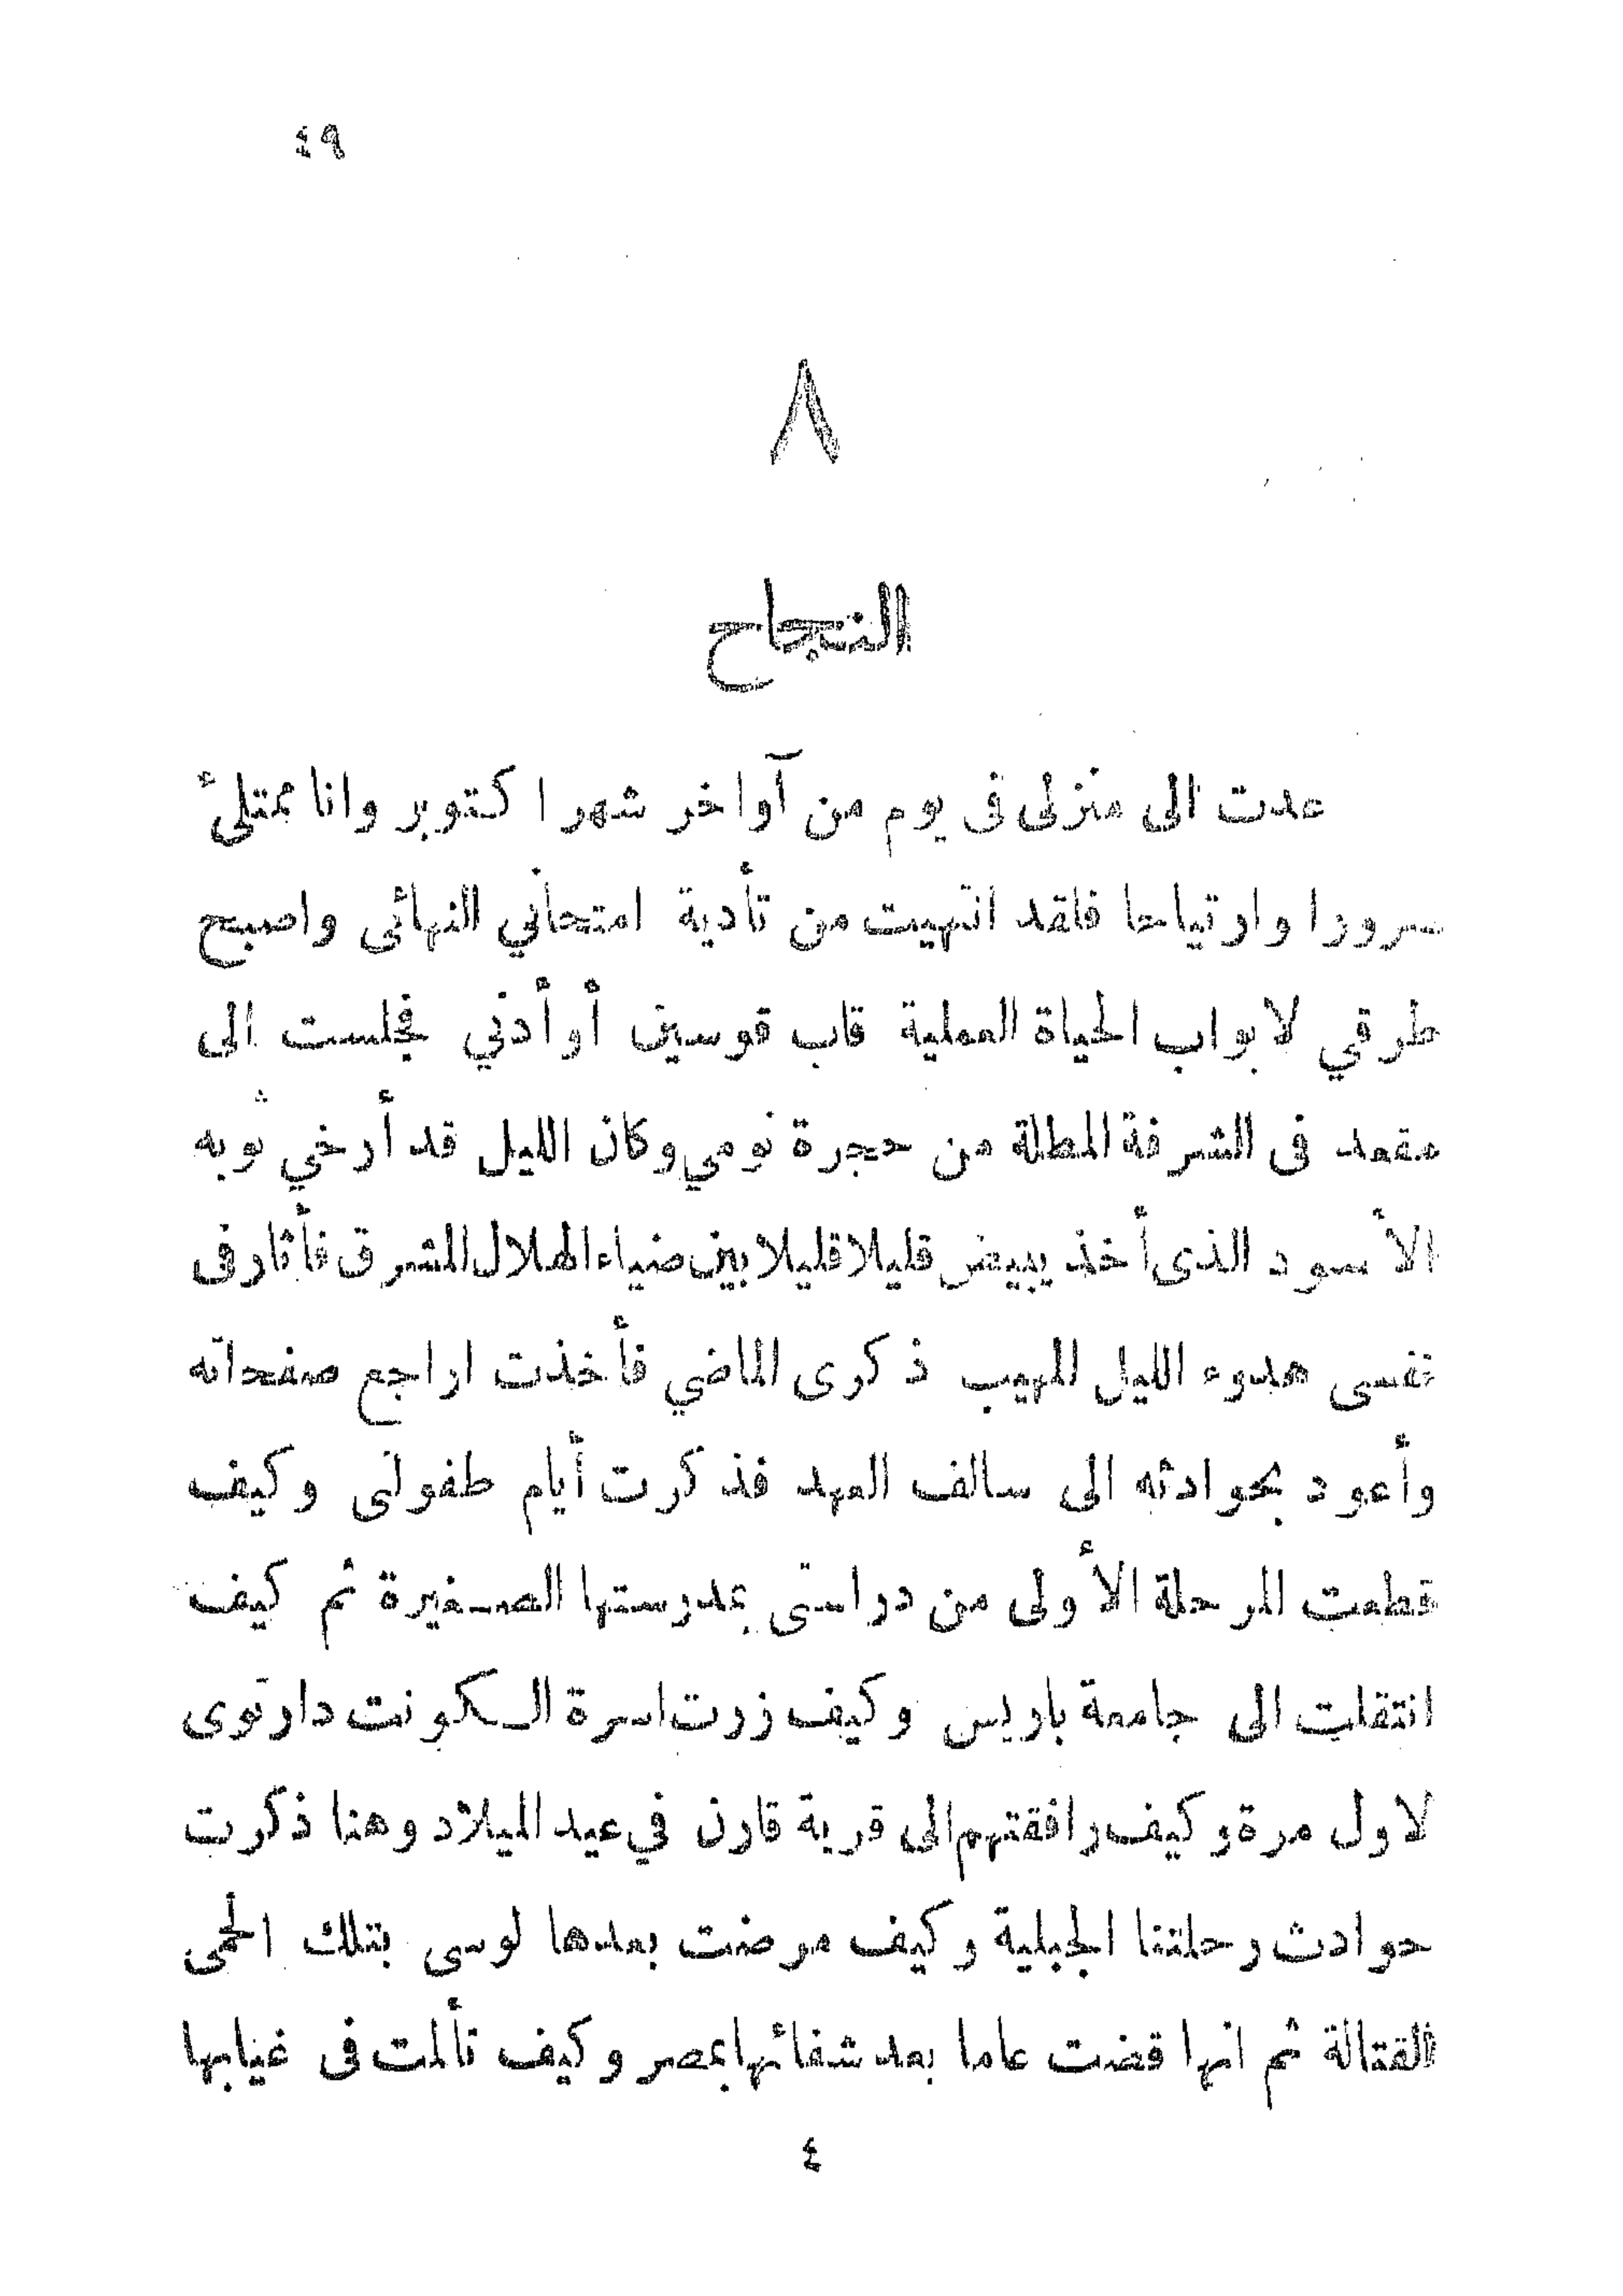 ٤٩
٨
النجاح
عدت الى منزلى فى يوم من آواخر شهر اكتوبر وانا ممتلئ
سرورا وارتياحا فلقد انتهيت من تأدية امتحاني النهائى واصبح
طرقي لابواب الحياة العملية قاب قوسين أو أدني فجلست الى
مقعد فى الشرفة المطلة من حجرة نومي وكان الليل قد أرخي ثوبه
الأسود الذى أخذ يبيض قليلا قليلا بين ضياء الهلال المشرق فأثار فى
نفسى هدوء الليل المهيب ذكرى الماضي فأخذت اراجع صفحاته
وأعود بحوادثه الى سالف العهد فذكرت أيام طفولتى وكيف
قطعت المرحلة الأولى من دراستى بمدرستها الصغيرة ثم كيف
انتقلت الى جامعة باريس وكيف زرت اسرة الكونت دارتوى
لاول مرة وكيف رافقتهم الى قرية قارن في عيد الميلاد وهنا ذكرت
حوادث رحلتنا الجبلية وكيف مرضت بعدها لوسى بتلك الحمى
القتالة ثم انها قضت عاما بعد شفائها بمصر وكيف تألمت فى غيابها
٤